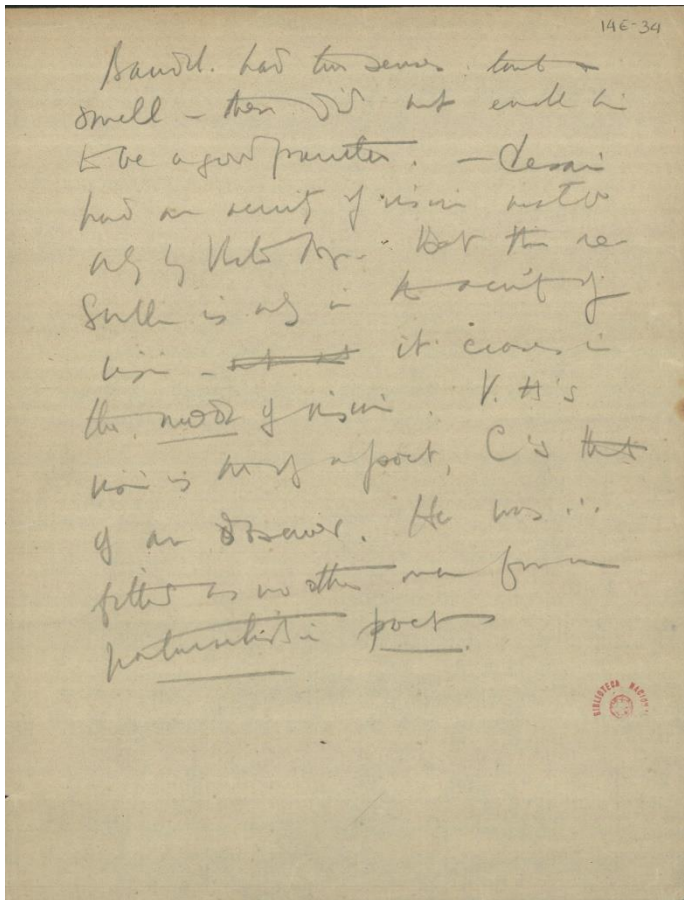 14E-34
Baudel. had two senses: touch &
smell — these did not enable him
to be a good painter. — Cesário
had an acuity of vision
only by Victor Hugo. But this re-
is only in the acuity of
vision — it
the mode of vision. V. H's
vision is that of a poet, C's that
of an observer. He was
fitted as no other man for a
naturalistic poet.
BIBLIOTECA NACIONAL